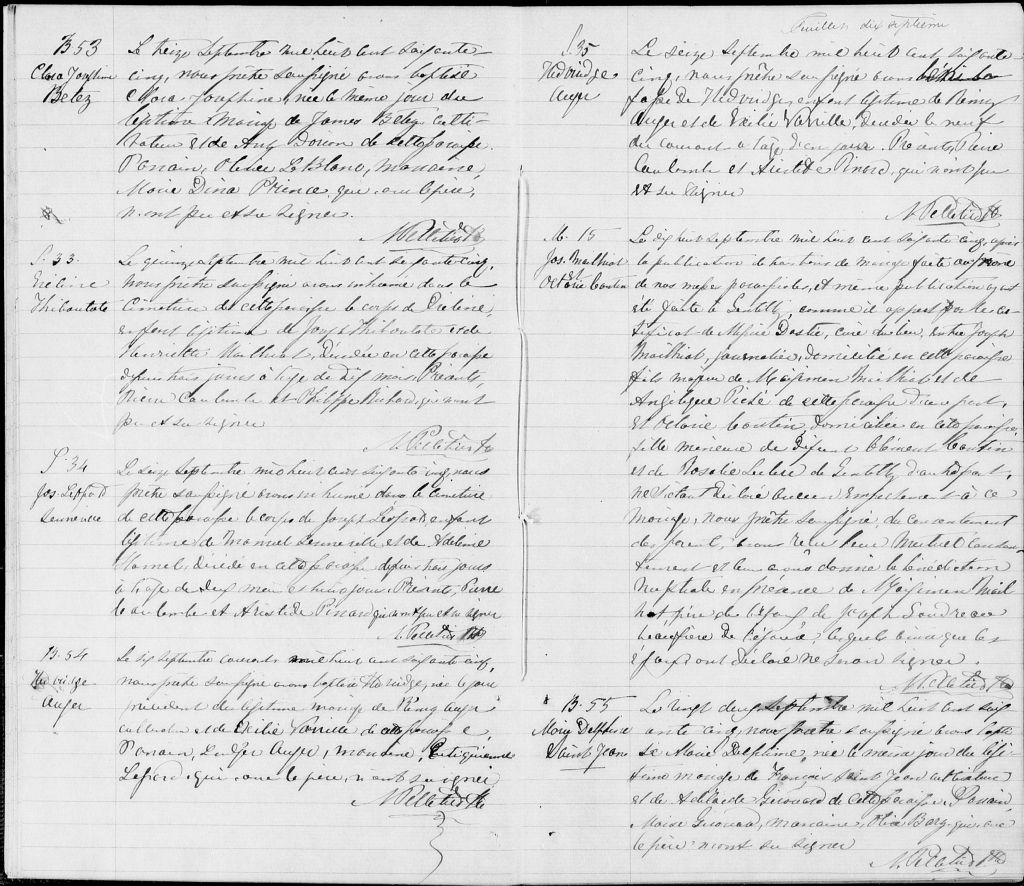 B 53
Clara Josephine
Belez
Le treize Septembre mil huit cent soixante
cinq, nous prêtre soussigné avons baptisé
Clara Josephine, née le même jour du
légitime mariage de James Belez culti-
vateur et de Ang Doiron de cette paroisse.
Parrain, Olivier LeBlanc, marraine,
Marie Dina Prince, qui avec le père,
n'ont pu et su signer.
N Pelletier Ptre
S. 33
Thibautote
Le quinze septembre mil huit cent soixante cinq,
nous prêtre soussigné avons inhumé dans le
Cimetière de cette paroisse le corps de
enfant légitime de Joseph Thibautote et de
Henriette Mailhiot, décédée en cette paroisse
depuis trois jours à l'age de dix mois. Présents,
Pierre Coulombe et Philippe Richard, qui n'ont
pu et su signer
N. Pelletier Ptre
S. 34
Jos. Leopold
Senneville
Le seize septembre mil huit cent soixante cinq, nous
prêtre soussigné avons inhumé dans le Cimetière
de cette paroisse le corps de Joseph Leopold, enfant
légitime de Manuel Senneville et de Adeline
Hamel, décédé en cette paroisse depuis trois jours
à l'age de deux mois et huit jours. Présents, Pierre
Coulombe et Aristide Pinard qui n'ont pu et su signer
N. Pelletier Ptre
B. 54
Hedvidge
Auger
Le dix septembre courant mil huit cent soixante cinq,
nous prêtre soussigné avons baptisé Hedvidge, née le jour
précédent du légitime mariage de Rémy Auger
cultivateur et de Exilie Vanille de cette paroisse,
Parrain, Ludger Auger, marraine,
qui avec le père, n'ont su signer
N Pelletier Ptre
Feuillet dix septième
S. 35
Hedvidge
Auger
Le seize Septembre mil huit cent soixante
cinq, nous prêtre soussigné avons
fosse de Hedvidge, enfant légitime de Rémy
Auger et de Exilie Vanille, décédée le neuf
du courant à l'age d'un jour. Présents, Pierre
Coulombe et Aristide Pinard, qui n'ont pu
et su signer
N. Pelletier Ptre
M. 15
Jos. Mailhiot
et
Octavie Cantin
Le dix huit septembre mil huit cent soixante cinq, après
la publication de trois bans de mariage faite au prone
de nos messes paroissiales, et même publication ayant
été faite à Gentilly, comme il appert par le cer-
tificat de Messire Dostie, curé du lieu, entre Joseph
Mailhiot, journalier, domicilié en cette paroisse
fils majeur de Maximin Mailhiot et de
Angelique Piché de cette paroisse d'une part,
et Octavie Cantin, domiciliée en cette paroisse,
fille mineure de défunt Clément Cantin
et de Rosalie Leclerc de Gentilly d'autre part,
ne s'étant déclaré aucun empêchement à ce
mariage, nous prêtre soussigné, du consentement
des parents, avons reçu leur mutuel consen-
tement et leur avons donné la bénédiction
nuptiale en présence de Maximin Mail-
hiot, père de l'époux, de Joseph Gaudreau
beau frère de l'épouse, lesquels ainsi que les
époux ont déclaré ne savoir signer.
N. Pelletier Ptre
B. 55
Marie Delphine
Saint Jean
Le vingt deux Septembre mil huit cent soix-
ante cinq, nous prêtre soussigné avons bapti-
sé Marie Delphine, née le même jour du légi-
time mariage de François Saint Jean cultivateur
et de Adelaide Girouard de cette paroisse. Parrain,
Moise Girouard, marraine, Olive qui avec
le père n'ont su signer
N. Pelletier Ptre